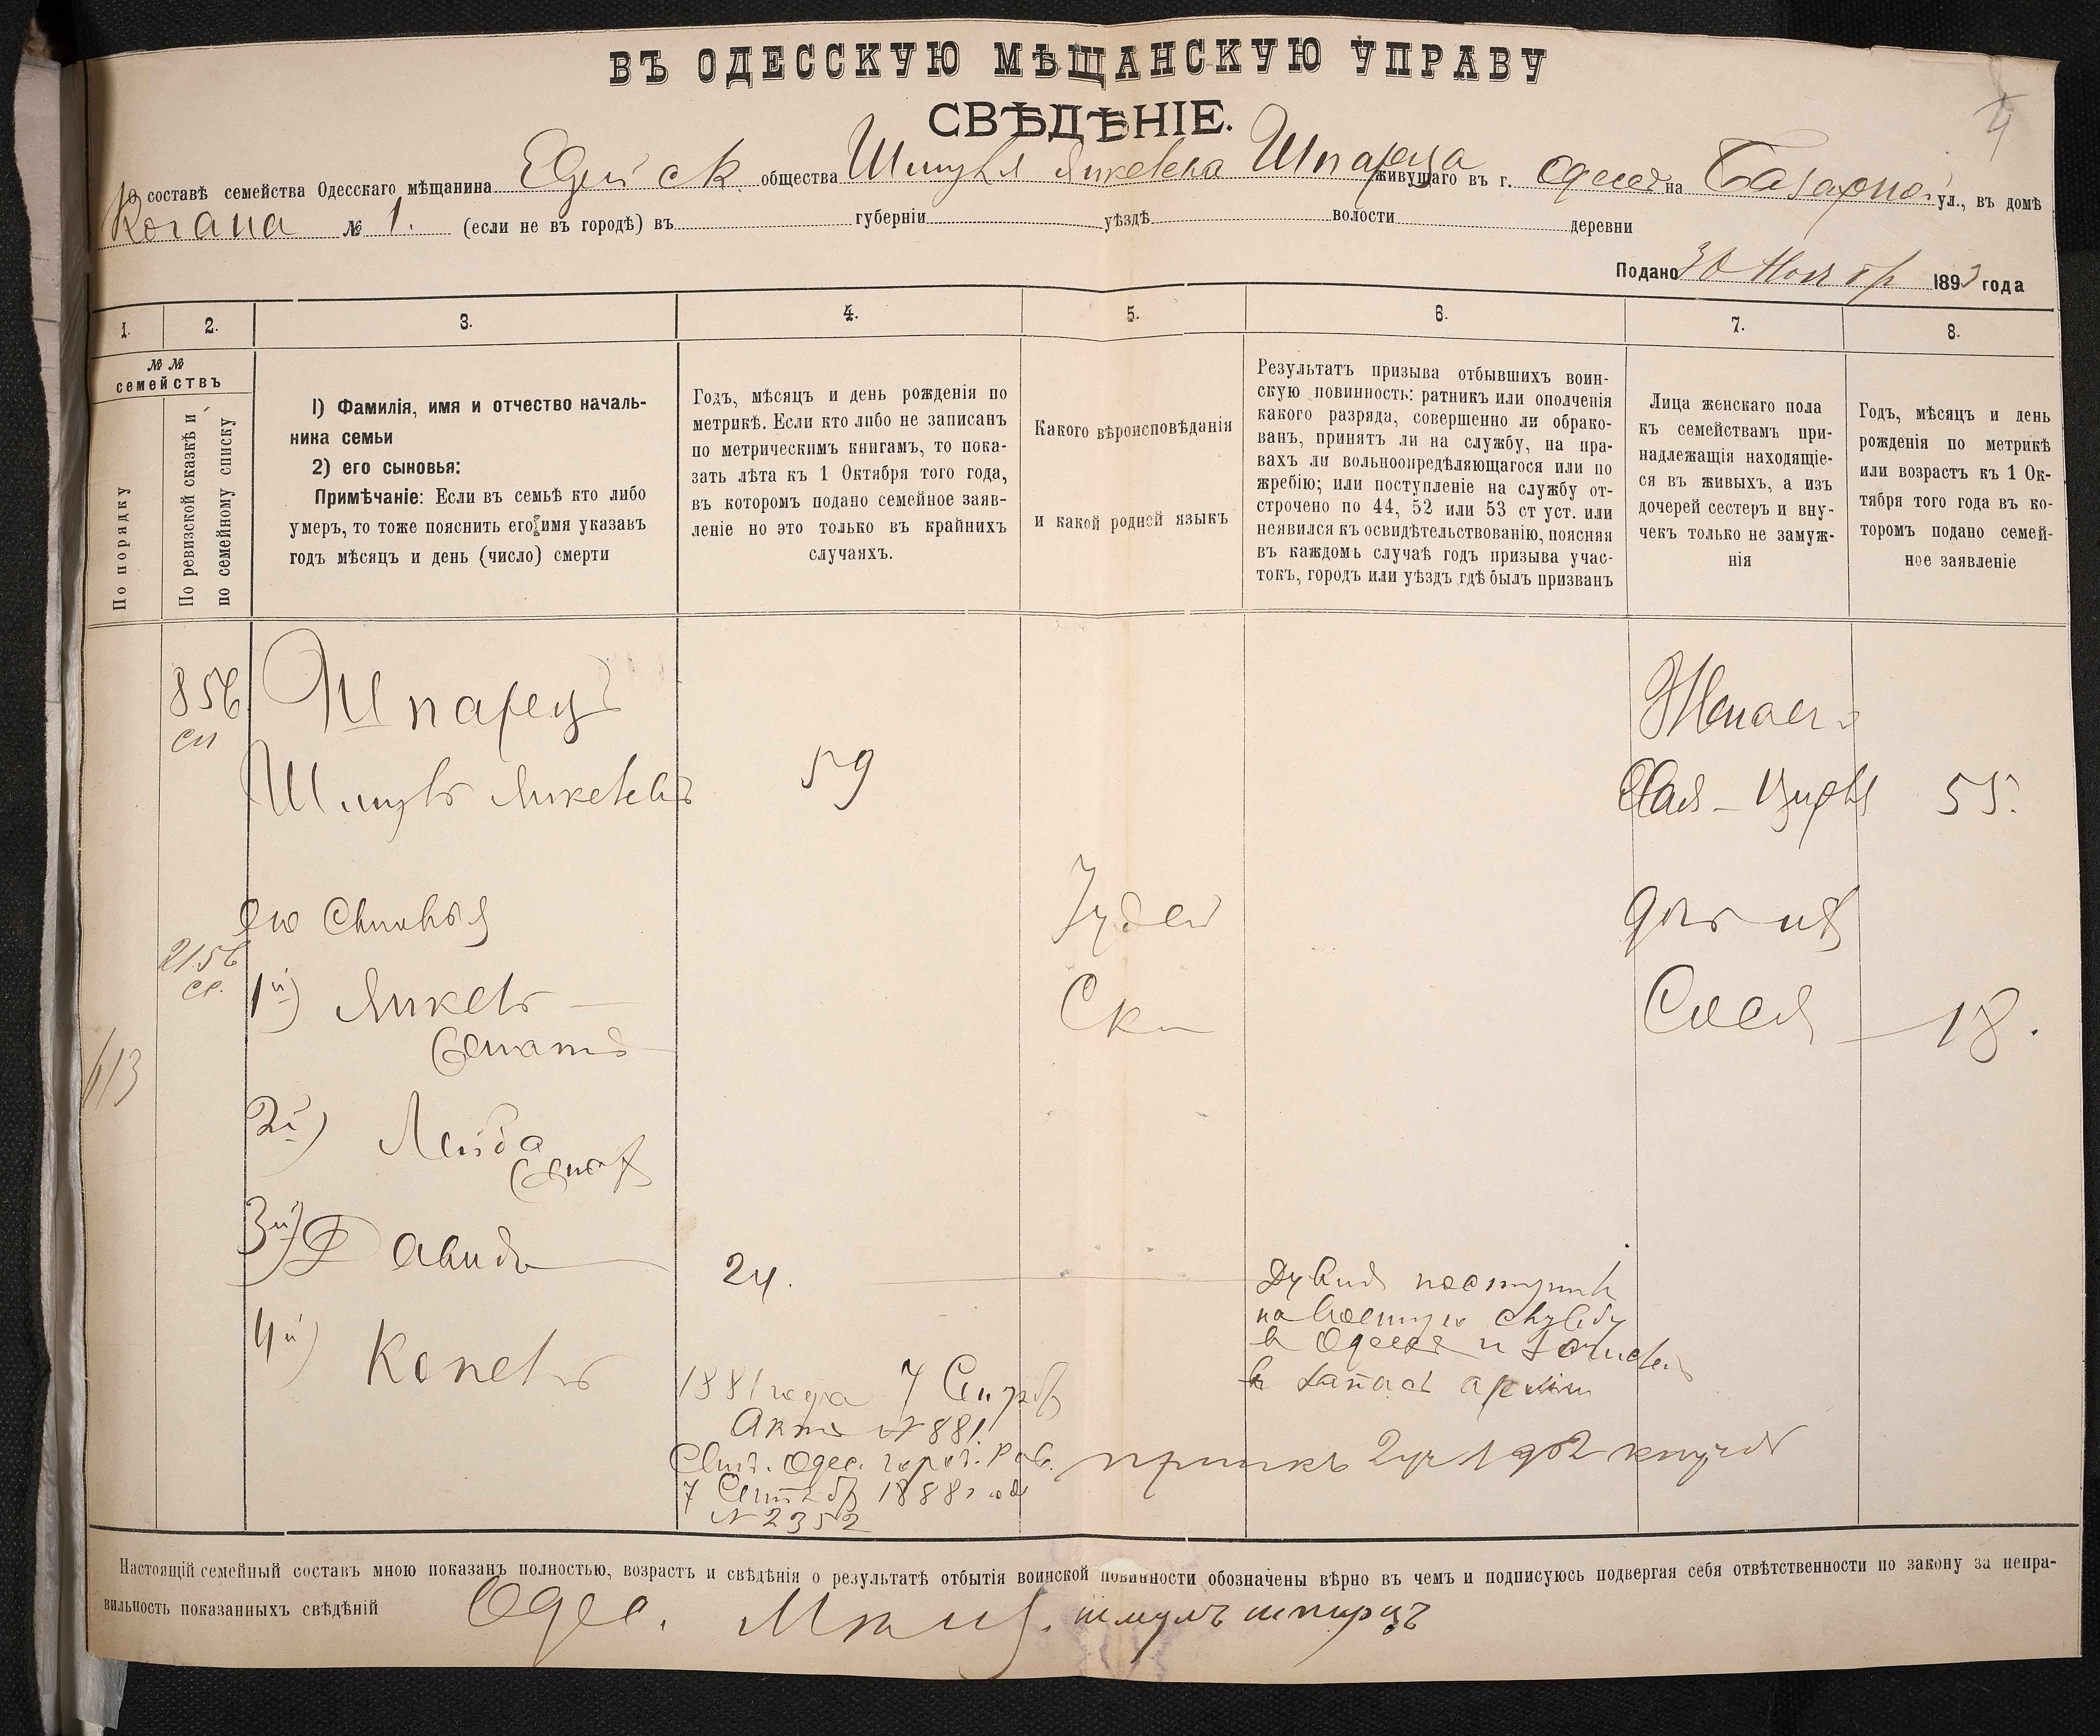 ВЪ ОДЕССКУЮ МѢЩАНСКУЮ УПРАВУ
СВѢДѢНІЕ.
4
о составѣ семейства Одесскаго мѣщанина Еврейск общества Шмуля Янкелева Шпареца живущаго въ г. Одессѣ на Базарной ул., въ домѣ
Когана № 1. (если не въ городѣ) въ губерніи уѣздѣ волости деревни
Подано 30 Ноябр 1893 года
1. 2. 3. 4. 5. 6. 7. 8.
№ №
семействъ
По порядку
По ревизской сказкѣ и
по семейному списку
1) Фамилія, имя и отчество началь-
ника семьи
2) его сыновья:
Примѣчаніе: Если въ семьѣ кто либо
умеръ, то тоже пояснить его имя указавъ
годъ мѣсяцъ и день (число) смерти
Годъ, мѣсяцъ и день рожденія по
метрикѣ. Если кто либо не записанъ
по метрическимъ книгамъ, то пока-
зать лѣта къ 1 Октября того года,
въ которомъ подано семейное заяв-
леніе но это только въ крайнихъ
случаяхъ.
Какого вѣроисповѣданія
и какой родной языкъ
Результатъ призыва отбывшихъ воин-
скую повинность: ратникъ или ополченія
какого разряда, совершенно ли обрако-
ванъ, принятъ ли на службу, на пра-
вахъ ли вольноопредѣляющагося или по
жребію; или поступленіе на службу от-
строчено по 44, 52 или 53 ст уст. или
неявился къ освидѣтельствованію, поясняя
въ каждомъ случаѣ годъ призыва учас-
токъ, городъ или уѣздъ гдѣ былъ призванъ
Лица женскаго пола
къ семействамъ при-
надлежащія находящіе-
ся въ живыхъ, а изъ
дочерей сестеръ и вну-
чекъ только не замуж-
нія
Годъ, мѣсяцъ и день
рожденія по метрикѣ
или возрастъ къ 1 Ок-
тября того года въ ко-
торомъ подано семей-
ное заявленіе
856
сп
Шпарецъ
Шмуль Янкелевъ
59
Жена его
Хая-Цирля 55.
Его Сыновья
Іудей
Ск
дочь ихъ
2156
1й) Янкель
Сося 18.
613
2й) Лейба
3й) Давидъ
24.
Дувидъ поступилъ
на военную службу
въ Одессѣ и зачислен
въ запасъ арміи
4й) Копель
1881 года 7 Сентябр
Актъ № 881
Свид. Одес. город. Рав.
7 Сентябр 1888 год
№ 2352
Настоящій семейный составъ мною показанъ полностью, возрастъ и свѣдѣнія о результатѣ отбытія воинской повинности обозначены вѣрно въ чемъ и подписуюсь подвергая себя отвѣтственности по закону за непра-
вильность показанныхъ свѣдѣній Одес. Мѣщ. шмуль шпарцъ